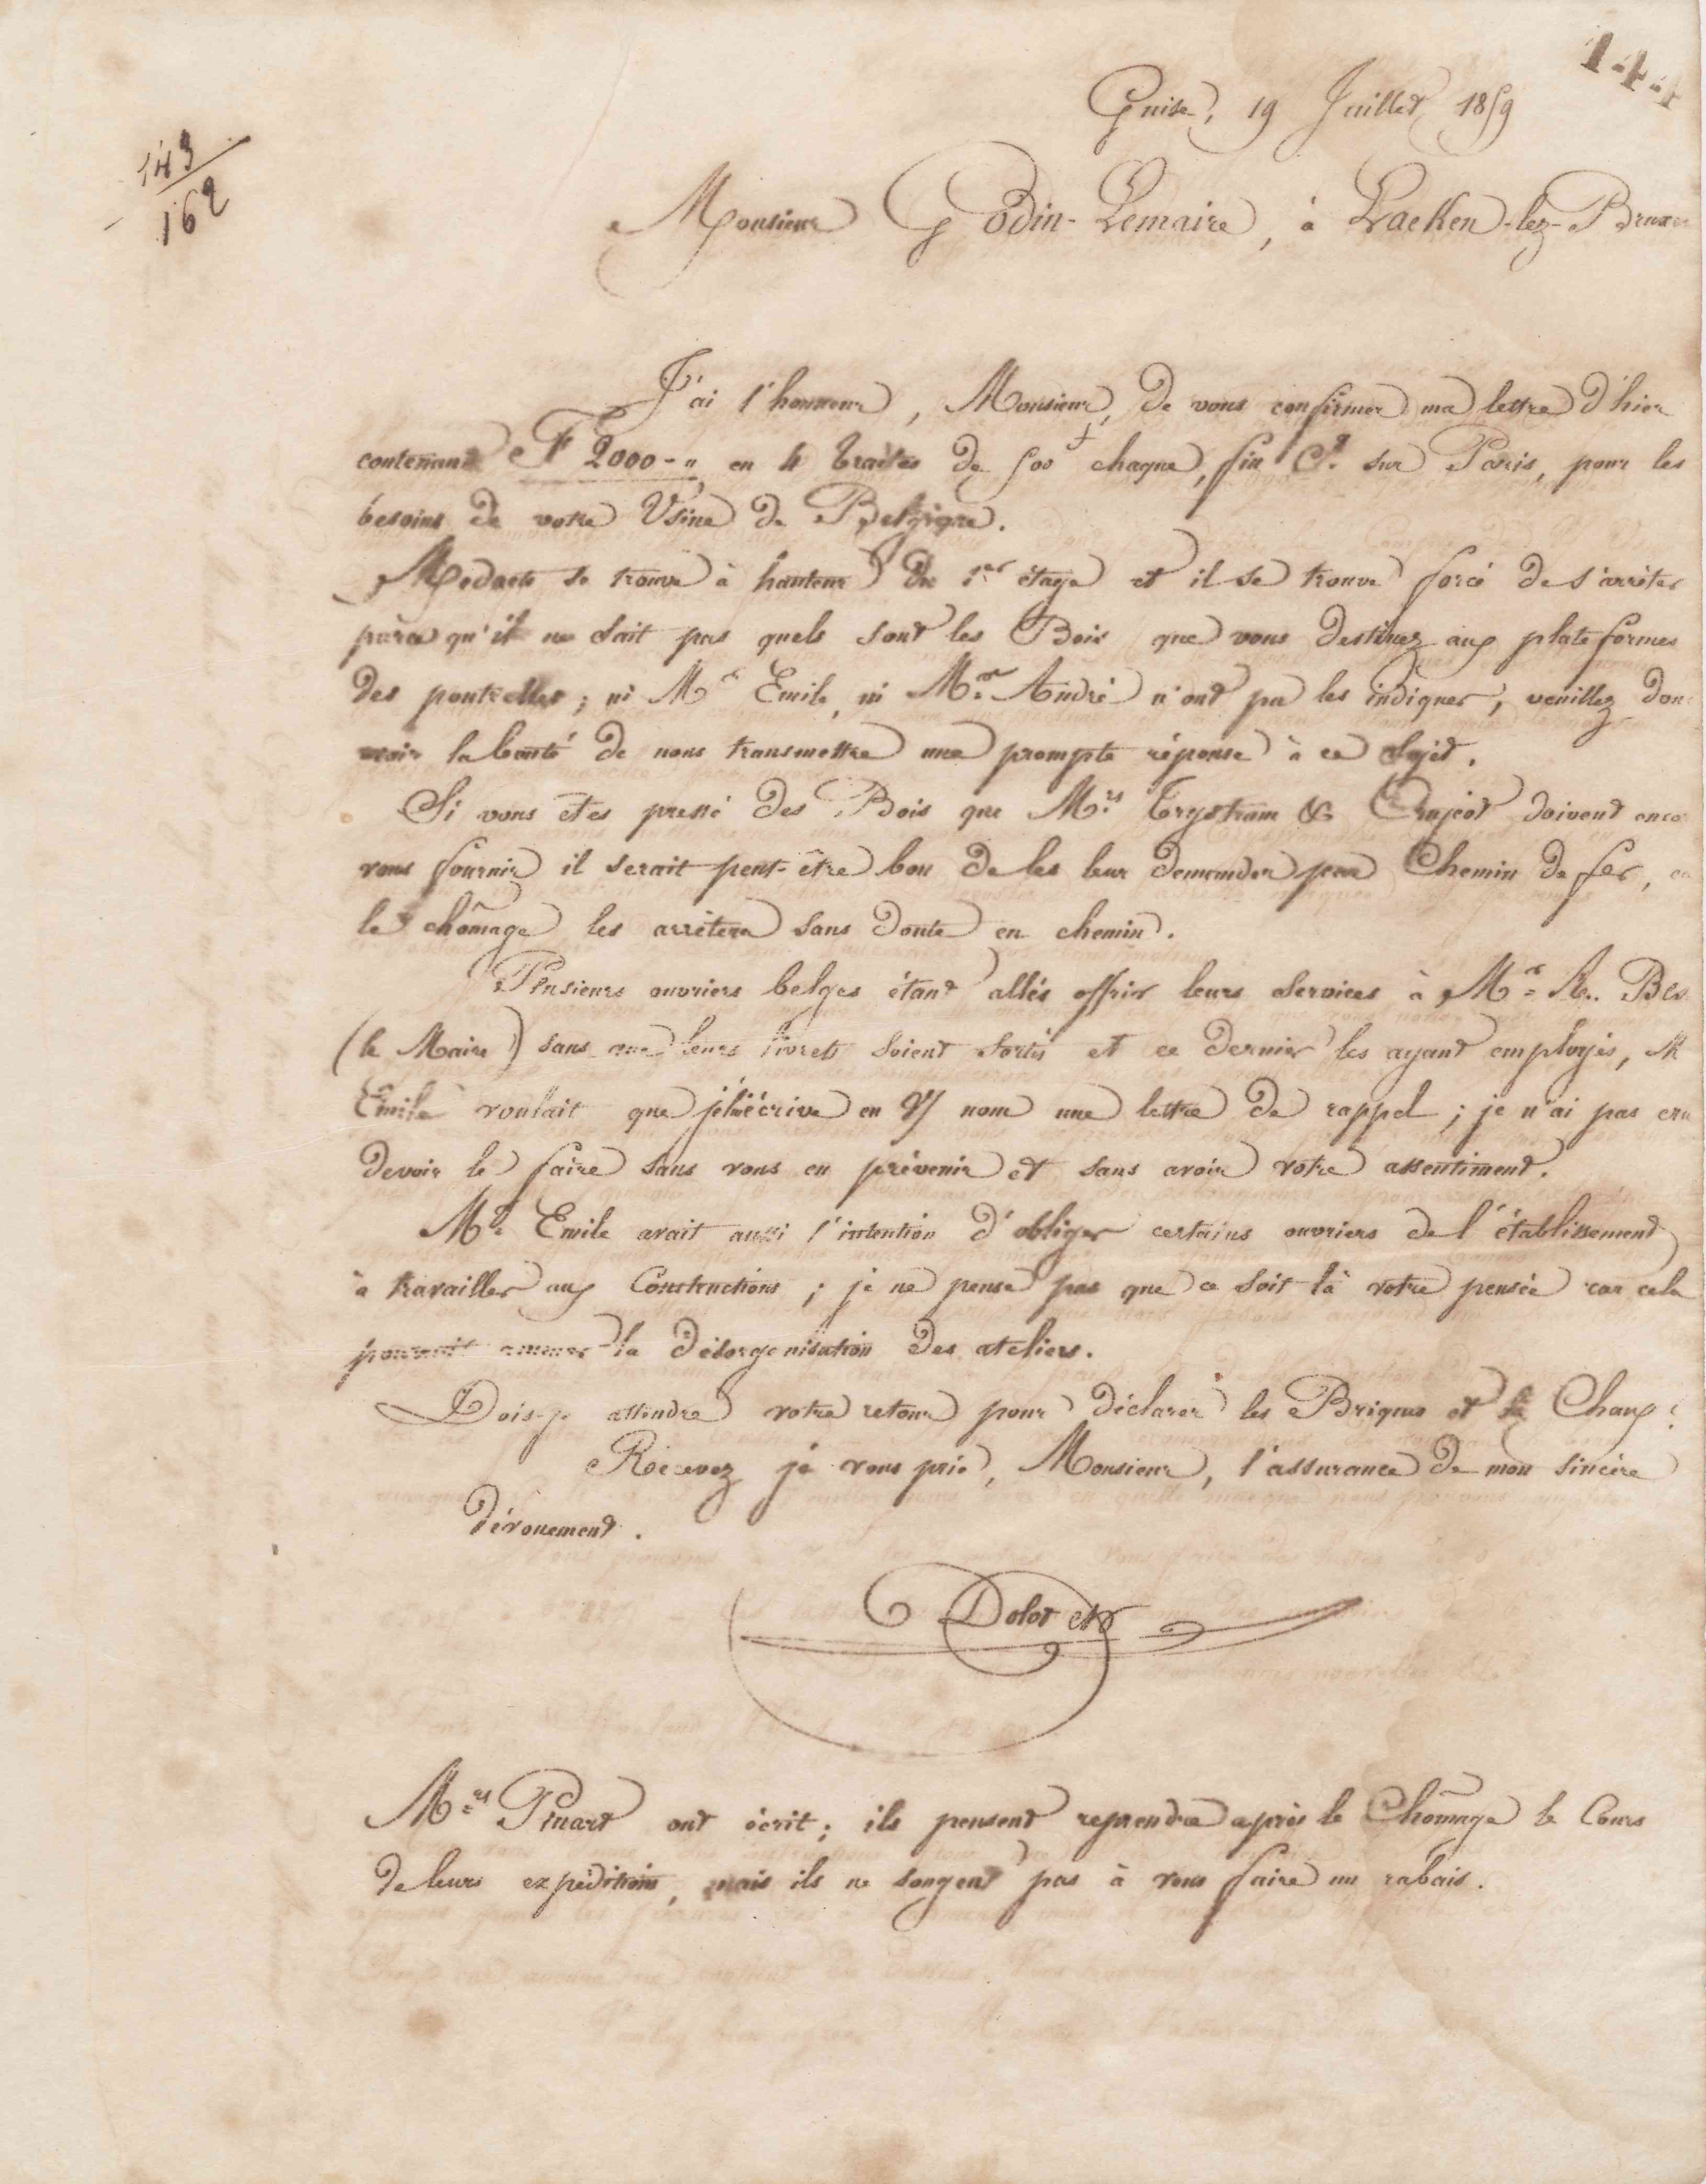 144
Guise, 19 Juillet 1859
143
162
Monsieur Godin-Lemaire, à Laeken-lez-Brux
J'ai l'honneur, Monsieur, de vous confirmer ma lettre d'hier
contenant F 2000-" en 4 traites de 500 f chaque, fin Ct. sur Paris, pour les
besoins de votre Usine de Belgique.
se trouve à hauteur du 1er étage et il se trouve forcé de s'arrêter
parce qu'il ne sait pas quels sont les Bois que vous destinez aux plate formes
des poutrelles; ni Mr Emile, ni Mr André n'ont pu les indiquer, veuillez don
avoir la bonté de nous transmettre une prompte réponse à ce sujet.
Si vous êtes pressé des Bois que Mrs Trystram & Crujeot doivent enco
vous fournir il serait peut-être bon de les leur demander par Chemin de fer, ca
le chômage les arrêtera sans doute en chemin.
Plusieurs ouvriers belges étant allés offrir leurs services à Mr
(le Maire) sans que leurs livrets soient sortis et ce dernier les ayant employés, M
Emile voulait que j'écrive en V/ nom une lettre de rappel; je n'ai pas cru
devoir le faire sans vous en prévenir et sans avoir votre assentiment.
Mr Emile avait aussi l'intention d'obliger certains ouvriers de l'établissement
à travailler aux Constructions; je ne pense pas que ce soit là votre pensée car cela
pourrait amener la désorganisation des ateliers.
Dois-je attendre votre retour pour déclarer les Briques et la Chaux?
Recevez je vous prie, Monsieur, l'assurance de mon sincère
dévouement.
Dolot
Mrs Pinart ont écrit; ils pensent reprendre après le Chômage le Cours
de leurs expéditions, mais ils ne songent pas à vous faire un rabais.